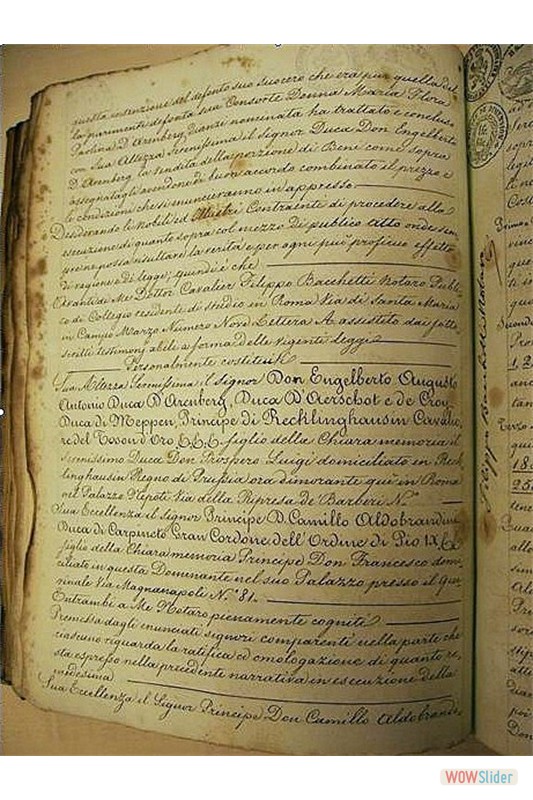 questa intenzione del defonto suo suocero che era pur quella del
la parimente defonta sua Consorte Donna Maria Flora
Paolina D'Arenberg dianzi nominata ha trattato e concluso
con Sua Altezza Serenissima il Signor Duca Don Engelberto
D'Arenberg la vendita della porzione di Beni come sopra
assegnatagli avendone di buon accordo combinato il prezzo e
le condizione che si enunceranno in appresso
Desiderando li Nobili ed Illustri Contraenti di procedere alla
esecuzione di quanto sopra col mezzo di pubblico atto onde sem
pre ne possa risultare la verità e per ogni più proficuo effetto
di ragione e di legge, quindi è che
Avanti di Me Dottor Cavalier Filippo Bacchetti Notaro Pubbli
co di Collegio residente di studio in Roma Via di Santa Maria
in Campo Marzo Numero Nove Lettera A. assistito dai sotto
scritti testimonj abili a forma delle vigente leggi
Personalmente costituiti
Sua Altezza Serenissima il Signor Don Engelberto Augusto
Antonio Duca D'Arenberg, Duca D'Aerschot e de Croy
Duca di Meppen, Principe di Recklinghausin Cavalie
re del Toson d'Oro &.&.&. figlio della Chiara memoria il
Serenissimo Duca Don Prospero Luigi domiciliato in Reck
linghausin Regno di Prussia ora dimorante quì in Roma
nel Palazzo Nepoti Via della Ripresa de' Barberi N.°
Sua Eccellenza il Signor Principe D. Camillo Aldobrandini
Duca di Carpineto Gran Cordone dell'Ordine di Pio IX.
figlio della Chiara memoria Principe Don Francesco domi
ciliato in questa Dominante nel suo Palazzo presso il Qui
rinale Via Magnanapoli N.° 81.
Entrambi a Me Notaro pienamente cogniti
Premessa dagli enunciati Signori comparenti nella parte che
ciascuno riguarda la ratifica ed omologazione di quanto re
sta espresso nella precedente narrativa in esecuzione della
medesima
Sua Eccellenza il Signor Principe Don Camillo Aldobrandi
Filippo Bacchetti Notaro
WOWSlider